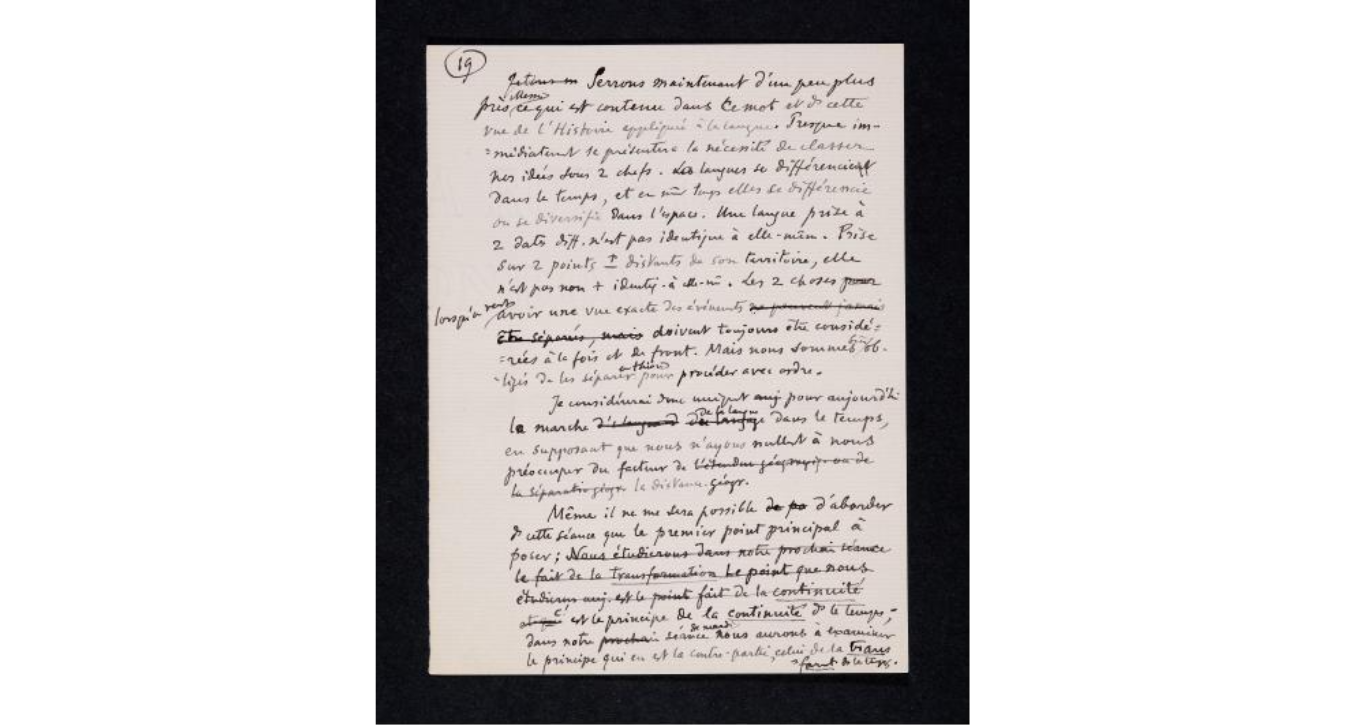 19
Jetons un Serrons maintenant d'un peu plus
près ce qui est contenu dans ce mot et ds cette
vue de l'Histoire appliquée à la langue. Presque im-
=médiatemt se présentera la nécessité de classer
nos idées sous 2 chefs. Les langues se différencient
dans le temps, et en mm temps elles se différencie
ou se diversifie dans l'espace. Une langue prise à
2 dates diff. n'est pas identique à elle-mêm. Prise
sur 2 points distants de son territoire, elle
n'est pas non + identiq. à elle-m. Les 2 choses pour
lorsqu'on veut avoir une vue exacte des événements ne peuvent jamais
être séparées, mais doivent toujours être considé=
=rées à la fois et de front. Mais nous sommes ob-
-ligés de les séparer en théorie pour procéder avec ordre.
Je considérerai donc uniqmt auj pour aujourd'hui
la marche de la langue dans le temps,
en supposant que nous n'ayons nullemt à nous
préoccuper du facteur de l'étendue géograpiq. ou de
la séparation géogr. la distance géogr.
Même il ne me sera possible de po d'aborder
ds cette séance que le premier point principal à
poser ; Nous étudierons dans notre prochain séance
le fait de la transformation Le point que nous
étudierons auj. est le point fait de la continuité
c' est le principe de la continuité ds le temps ;
dans notre prochain séance de mardi nous aurons à examiner
le principe qui en est la contre-partie, celui de la trans
=formt ds le temps.